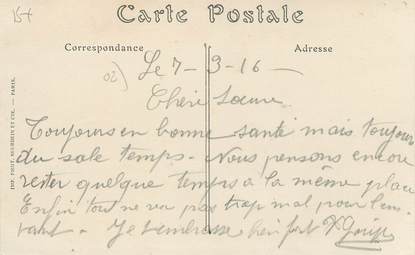 15+
Carte Postale
Correspondance
Adresse
Le 7-3-16-
Chère Soeur
Toujours en bonne santé mais toujours
du sale temps. Nous pensons encore
rester quelque temps à la même place
Enfin tout ne va pas trop mal pour
Je t'embrasse bien fort
IMP. PHOT. NEURDEIN ET CIE. — PARIS.